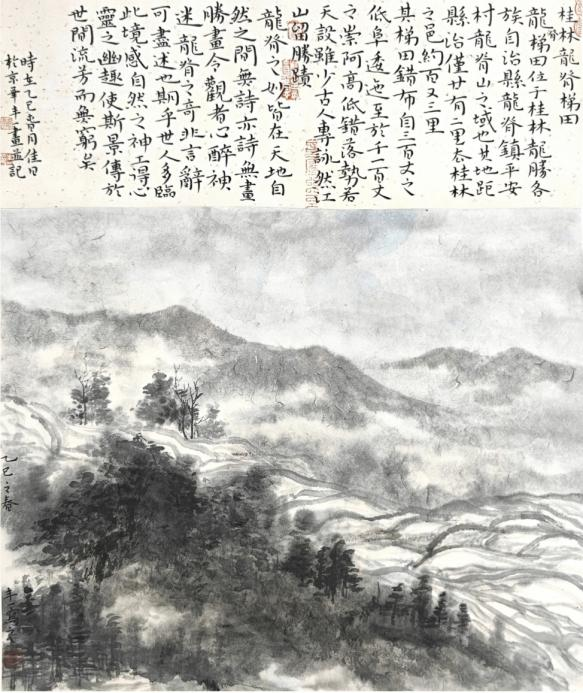 桂林龍脊梯田
龍脊梯田位于桂林龍勝各
族自治縣龍脊鎮平安
村龍脊山之域也其地距
縣治僅廿有二里去桂林
之邑約百又三里
其梯田錯布自三百丈之
低阜逶迤至於千一百丈
之崇阿高低錯落勢若
天設雖少古人專詠然江
山留勝蹟
龍脊之妙皆在天地自
然之間無詩亦詩無畫
勝畫令觀者心醉神
迷龍脊之奇非言辭
可盡述也期乎世人多臨
此境感自然之神工得心
靈之幽趣使斯景傳於
世間流芳而無窮矣
時在乙巳春月佳日
於京華年畫並記
乙巳之春